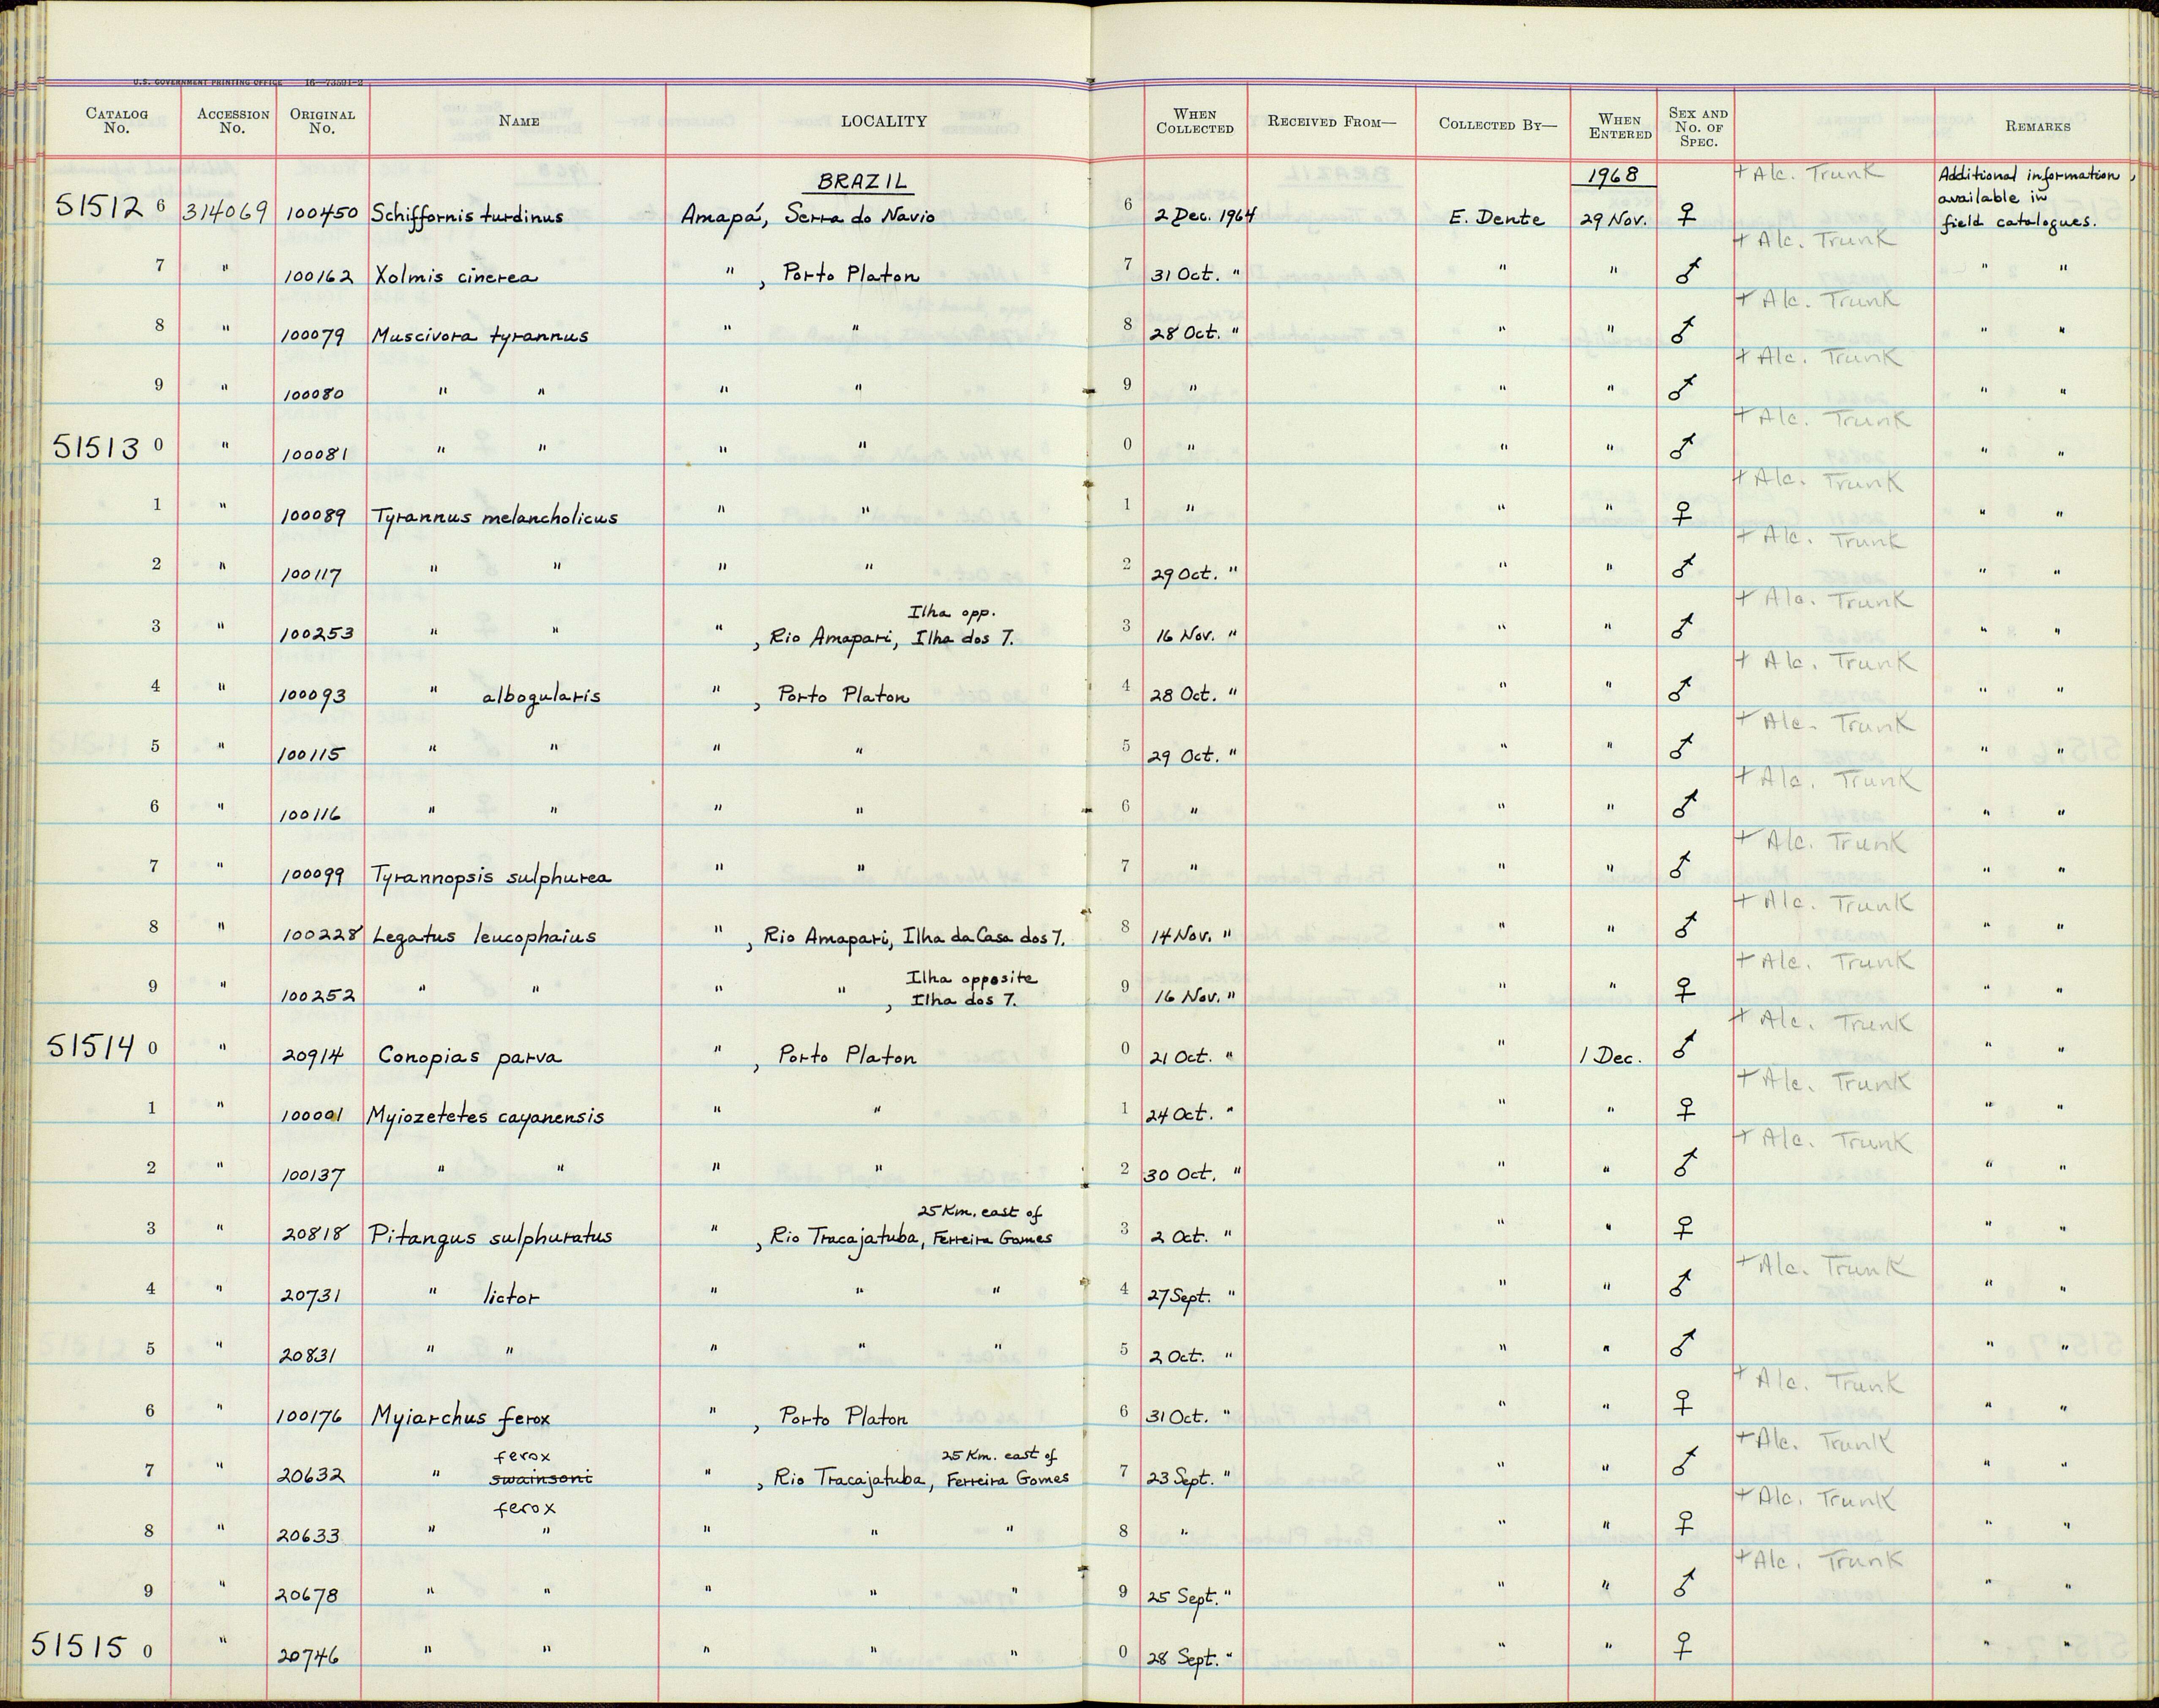 U.S. GOVERNMENT PRINTING OFFICE 16—73591-2
CATALOG No. ACCESSION No. ORIGINAL No. NAME LOCALITY WHEN COLLECTED RECEIVED FROM— COLLECTED BY— WHEN ENTERED SEX AND No. OF SPEC. REMARKS
BRAZIL 1968 + Alc. Trunk Additional information available in field catalogues.
51512 6 314069 100450 Schiffornis turdinus Amapá, Serra do Navio 6 2 Dec. 1964 E. Dente 29 Nov. ♀
+ Alc. Trunk
7 " 100162 Xolmis cinerea " , Porto Platon 7 31 Oct. " " " ♂ " "
+ Alc. Trunk
8 " 100079 Muscivora tyrannus " " 8 28 Oct. " " " ♂ " "
+ Alc. Trunk
9 " 100080 " " " " 9 " " " ♂ " "
+ Alc. Trunk
51513 0 " 100081 " " " " 0 " " " ♂ " "
+ Alc. Trunk
1 " 100089 Tyrannus melancholicus " " 1 " " " ♀ " "
+ Alc. Trunk
2 " 100117 " " " " 2 29 Oct. " " " ♂ " "
Ilha opp. + Alc. Trunk
3 " 100253 " " " , Rio Amapari, Ilha dos 7. 3 16 Nov. " " " ♂ " "
+ Alc. Trunk
4 " 100093 " albogularis " , Porto Platon 4 28 Oct. " " " ♂ " "
+ Alc. Trunk
5 " 100115 " " " " 5 29 Oct. " " " ♂ " "
+ Alc. Trunk
6 " 100116 " " " " 6 " " " ♂ " "
+ Alc. Trunk
7 " 100099 Tyrannopsis sulphurea " " 7 " " " ♂ " "
+ Alc. Trunk
8 " 100228 Legatus leucophaius " , Rio Amapari, Ilha da Casa dos 7. 8 14 Nov. " " " ♂ " "
Ilha opposite + Alc. Trunk
9 " 100252 " " " " , Ilha dos 7. 9 16 Nov. " " " ♀ " "
+ Alc. Trunk
51514 0 " 20914 Conopias parva " , Porto Platon 0 21 Oct. " " 1 Dec. ♂ " "
+ Alc. Trunk
1 " 100001 Myiozetetes cayanensis " " 1 24 Oct. " " " ♀ " "
+ Alc. Trunk
2 " 100137 " " " " 2 30 Oct. " " " ♂ " "
25 Km. east of
3 " 20818 Pitangus sulphuratus " , Rio Tracajatuba, Ferreira Gomes 3 2 Oct. " " " ♀ " "
+ Alc. Trunk
4 " 20731 " lictor " " " 4 27 Sept. " " " ♂ " "
5 " 20831 " " " " " 5 2 Oct. " " " ♂ " "
+ Alc. Trunk
6 " 100176 Myiarchus ferox " , Porto Platon 6 31 Oct. " " " ♀ " "
ferox 25 Km. east of + Alc. Trunk
7 " 20632 " swainsoni " , Rio Tracajatuba, Ferreira Gomes 7 23 Sept. " " " ♂ " "
ferox + Alc. Trunk
8 " 20633 " " " " " 8 " " " ♀ " "
+ Alc. Trunk
9 " 20678 " " " " " 9 25 Sept. " " " ♂ " "
51515 0 " 20746 " " " " " 0 28 Sept. " " " ♀ " "